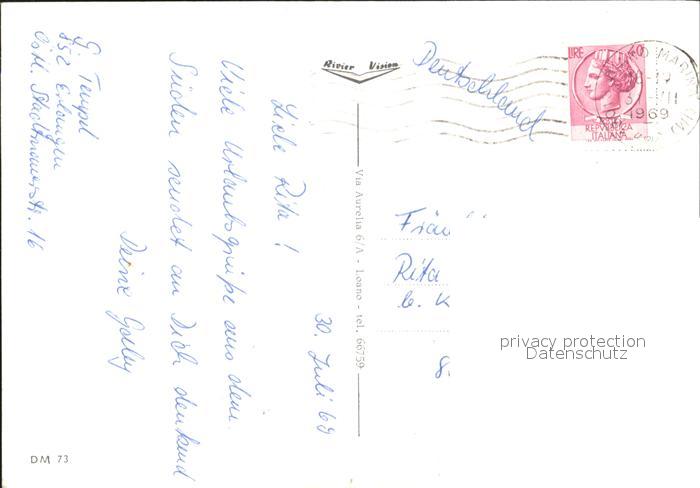 30. Juli 69
Liebe Rita!
Viele Urlaubsgrüße aus dem
Süden sendet an Dich denkend
Deine
G. Tempel
852 Erlangen
Östl. Stadtmauerstr. 16
Rivier Vision
Via Aurelia 6/A - Loano - tel. 66759
Deutschland
LIRE 40
REPVBBLICA
ITALIANA
1969
Fräu
Rita
b. K
8.
privacy protection
Datenschutz
DM 73